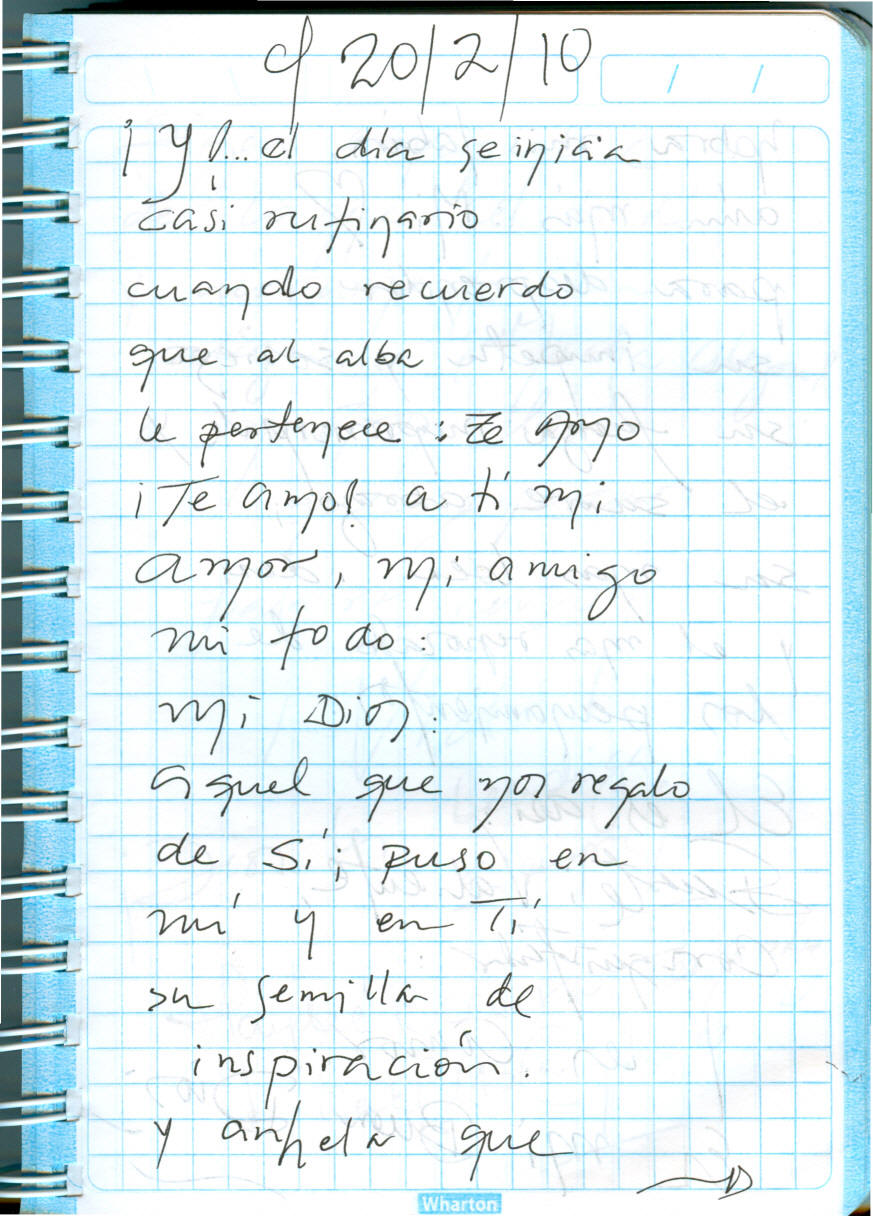 20/2/10
¡Y!... el día se inicia
casi rutinario
cuando recuerdo
que al alba
le pertenece: Te amo
¡Te amo! a tí mi
amor, mi amigo
mi todo:
mi Dios:
aquel que nos regalo
de Sí; puso en
mí y en Tí
su semilla de
inspiración.
y anhela que
Wharton